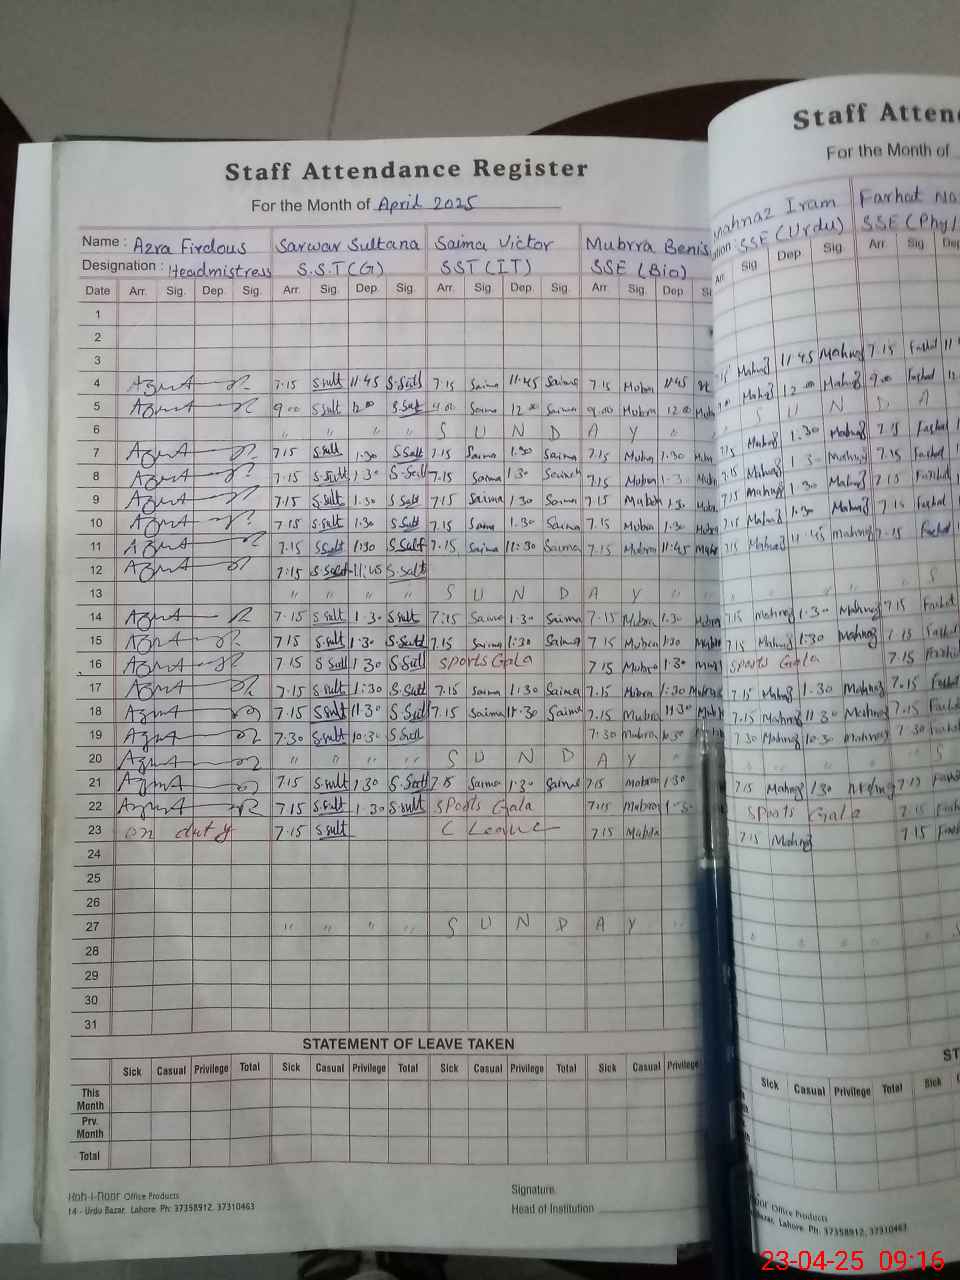 Staff Attendance Register
For the Month of April 2025
Name : Azra Firdous Sarwar Sultana Saima Victor Mubrra Benis
Designation : Headmistress S.S.T(G) SST(IT) SSE (Bio)
Date Arr. Sig. Dep. Sig. Arr. Sig. Dep. Sig. Arr. Sig. Dep. Sig. Arr. Sig. Dep.
1
2
3
4 7.15 S.sult 11.45 S.Sult 7.15 Saima 11.45 Saima 7.15 Mubra 11.45
5 9.00 S.sult 12.00 S.Sult 9.00 Saima 12.00 Saima 9.00 Mubra 12.00
6 " " " " S U N D A Y "
7 7.15 S.sult 1.30 S.Sult 7.15 Saima 1.30 Saima 7.15 Mubra 1.30
8 7.15 S.Sult 1.30 S.Sult 7.15 Saima 1.30 Saima 7.15 Mubra 1.30
9 7.15 S.Sult 1.30 S.Sult 7.15 Saima 1.30 Saima 7.15 Mubra 1.30
10 7.15 S.sult 1.30 S.Sult 7.15 Saima 1.30 Saima 7.15 Mubra 1.30
11 7.15 S.Sult 1:30 S.Sult 7.15 Saima 11:30 Saima 7.15 Mubra 11:45
12 7:15 S.Sult 11:45 S.Sult
13 " " " " S U N D A Y "
14 7.15 S.sult 1.30 S.sult 7:15 Saima 1.30 Saima 7.15 Mubra 1.30
15 7.15 S.sult 1:30 S.Sult 7.15 Saima 1:30 Saima 7.15 Mubra 1.30
16 7.15 S.Sult 1.30 S.Sult Sports Gala 7.15 Mubra 1.30
17 7.15 S.sult 1:30 S.Sult 7.15 Saima 1.30 Saima 7.15 Mubra 1:30
18 7.15 S.sult 11.30 S.Sult 7.15 Saima 11.30 Saima 7.15 Mubra 11.30
19 7.30 S.sult 10.30 S.Sult 7.30 Mubra 10.30
20 " " " " S U N D A Y "
21 7.15 S.sult 1.30 S.Sult 7.15 Saima 1.30 Saima 7.15 Mubra 1.30
22 7.15 S.sult 1.30 S.sult Sports Gala 7.15 Mubra
23 on duty 7.15 S.sult C Leave 7.15 Mubra
24
25
26
27 " " " " S U N D A Y "
28
29
30
31
STATEMENT OF LEAVE TAKEN
Sick Casual Privilege Total Sick Casual Privilege Total Sick Casual Privilege Total Sick Casual Privilege
This Month
Prv. Month
Total
Koh-i-noor Office Products
14 - Urdu Bazar, Lahore. Ph: 37358912, 37310463
Signature.
Head of Institution
Staff Atten
For the Month of
Mahnaz Iram Farhat Na
SSE (Urdu) SSE (Phy/
Arr. Sig. Dep. Sig. Arr. Sig. Dep
Mahnaz 11.45 Mahnaz 7.15 Farhat 11
Mahnaz 12.00 Mahnaz 9.00 Farhat 12.
S U N D A
7.15 Mahnaz 1.30 Mahnaz 7.15 Farhat
7.15 Mahnaz 1.30 Mahnaz 7.15 Farhat
7.15 Mahnaz 1.30 Mahnaz 7.15 Farhat
7.15 Mahnaz 1.30 Mahnaz 7.15 Farhat
7.15 Mahnaz 11.45 Mahnaz 7.15 Farhat
S
7.15 Mahnaz 1.30 Mahnaz 7.15 Farhat
7.15 Mahnaz 1:30 Mahnaz 7.15 Farhat
Sports Gala 7.15 Farhat
7.15 Mahnaz 1.30 Mahnaz 7.15 Farhat
7.15 Mahnaz 11.30 Mahnaz 7.15 Farhat
7.30 Mahnaz 10.30 Mahnaz 7.30 Farhat
S
7.15 Mahnaz 1.30 Mahnaz 7.15
Sports Gala 7.15
7.15 Mahnaz 7.15
ST
Sick Casual Privilege Total Sick
Office Products
Bazar, Lahore. Ph: 37358912, 37310463
23-04-25 09:16